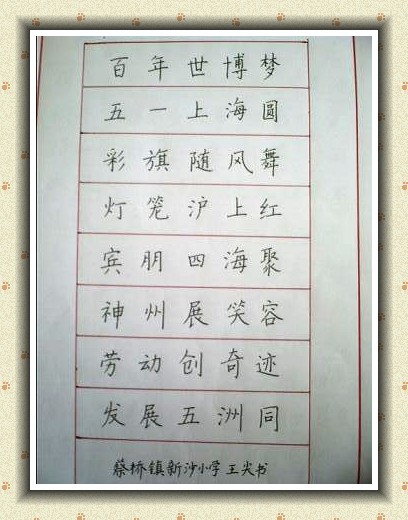 百年世博梦
五一上海圆
彩旗随风舞
灯笼沪上红
宾朋四海聚
神州展笑容
劳动创奇迹
发展五洲同
蔡桥镇新沙小学 王尖书